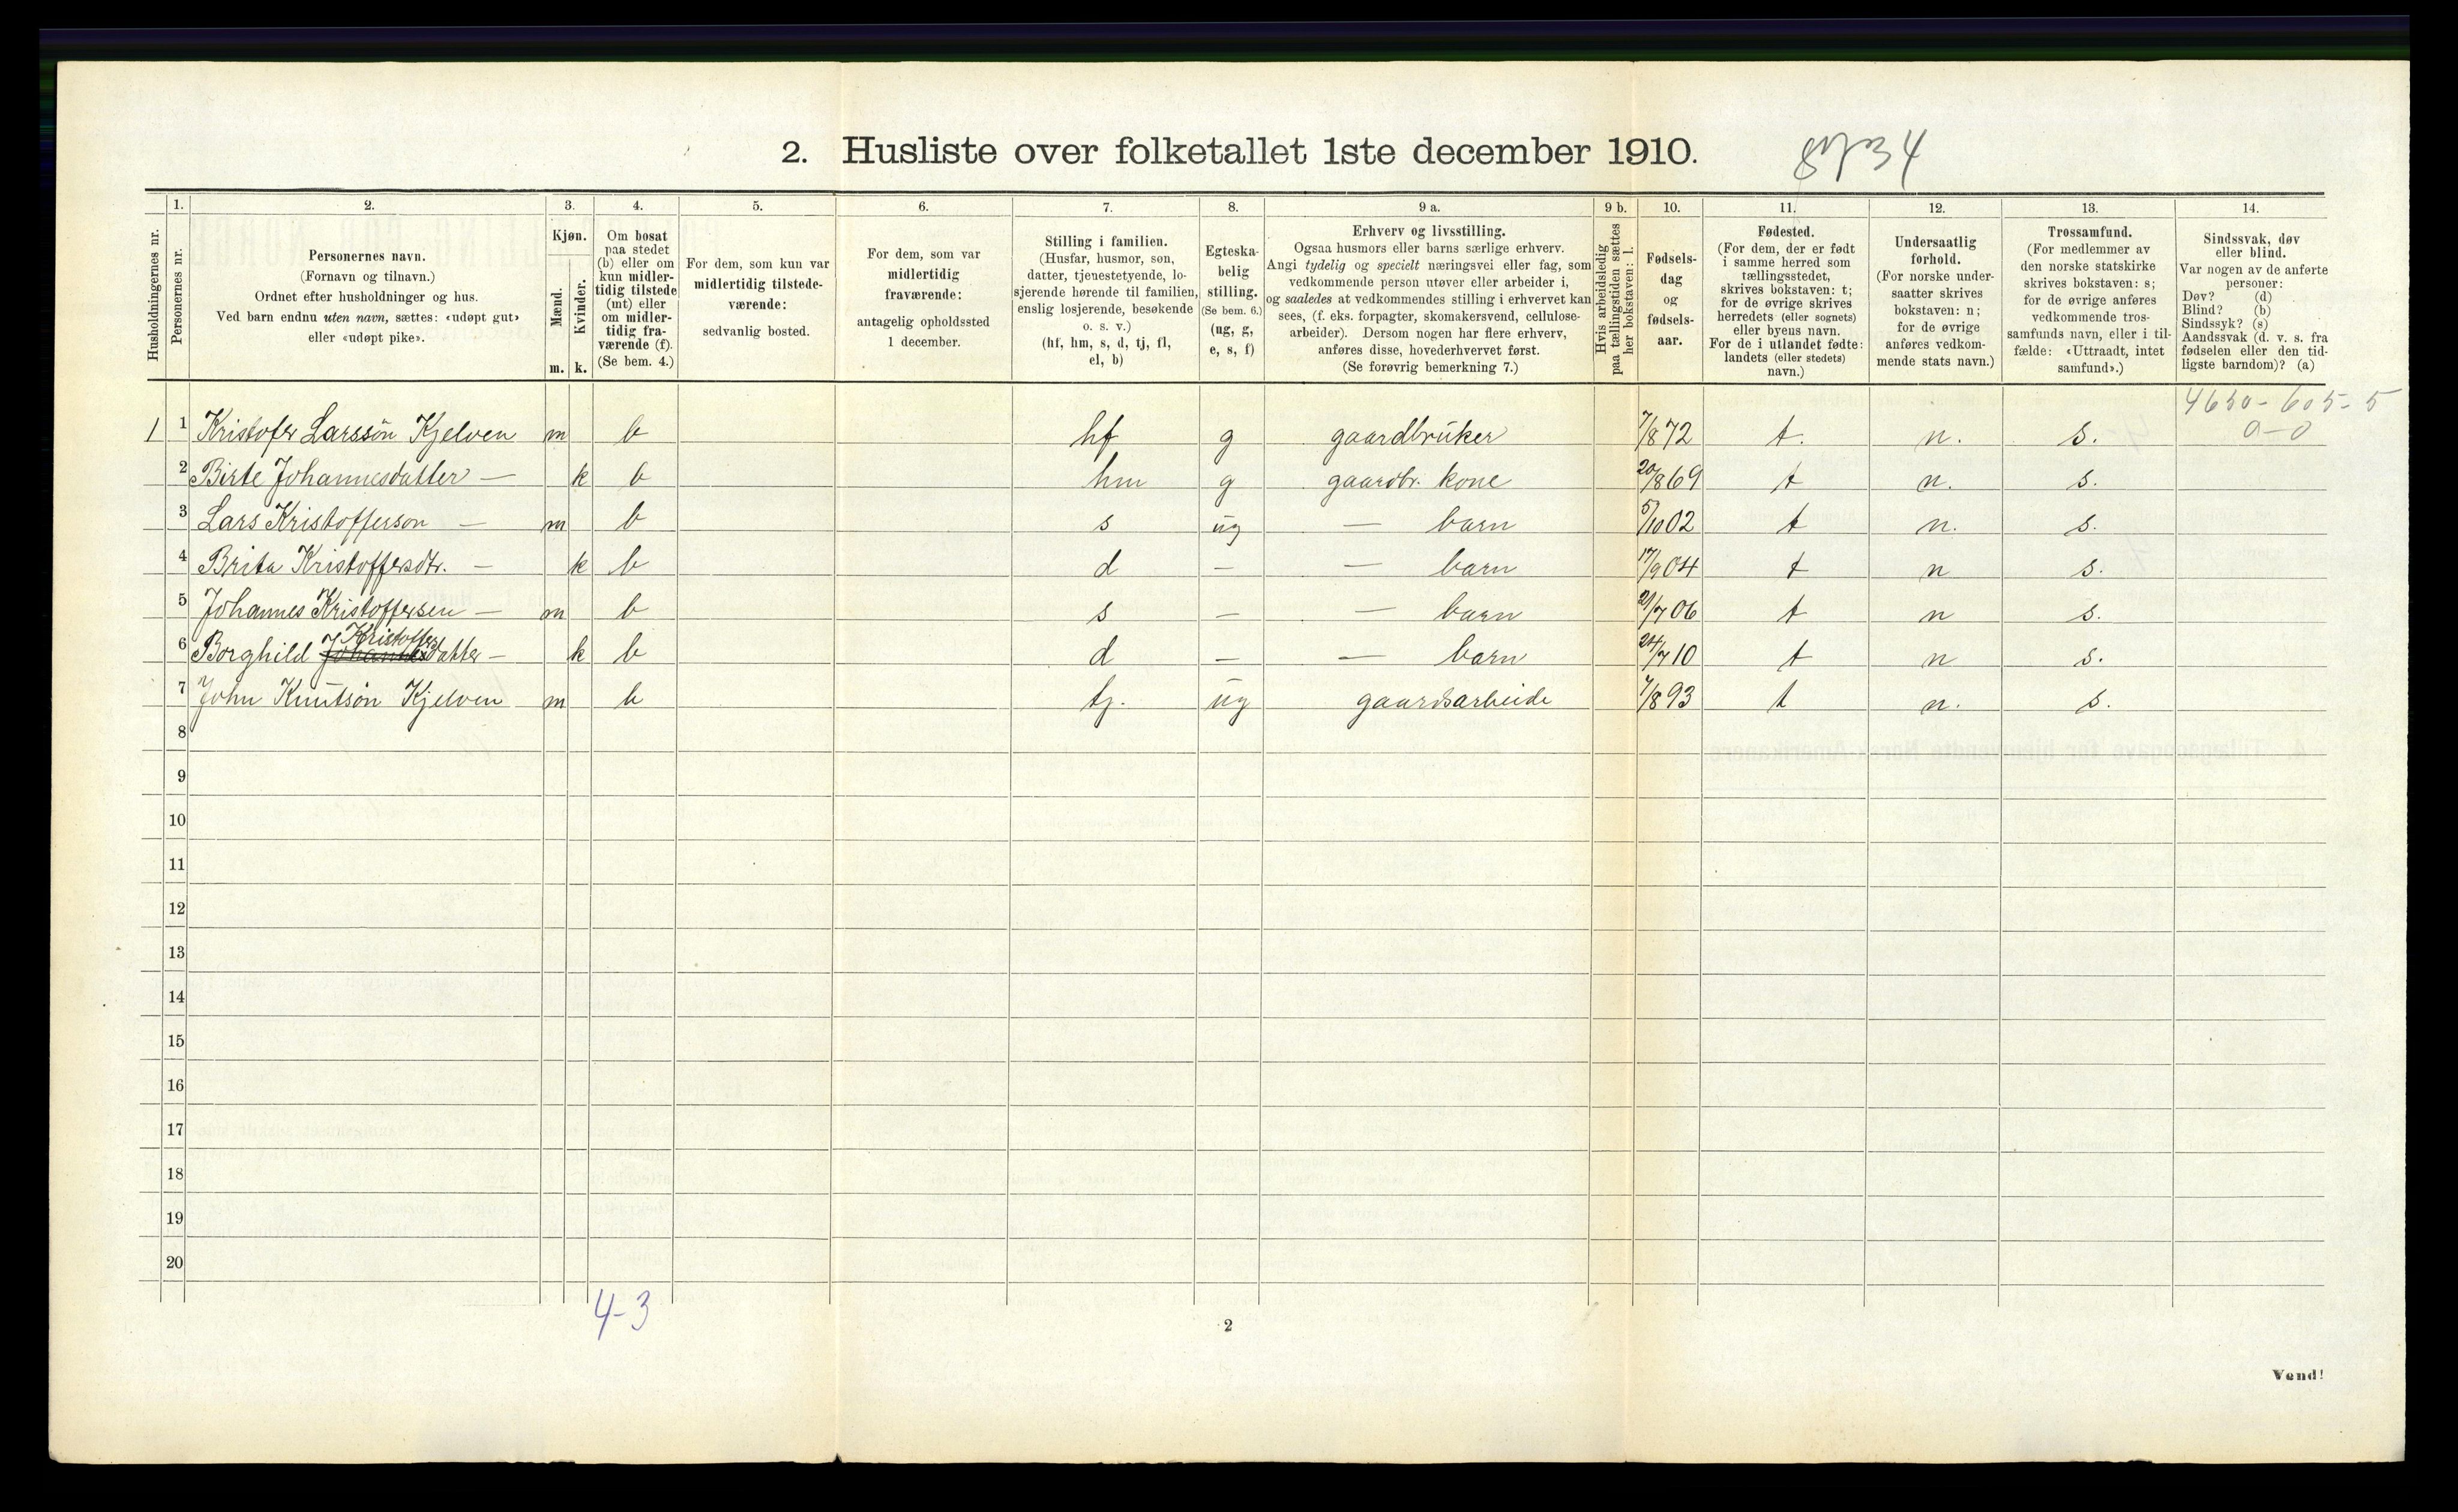 2. Husliste over folketallet 1ste december 1910.
Husholdningernes nr.
1. Personernes nr.
2. Personernes navn. (Fornavn og tilnavn.) Ordnet efter husholdninger og hus. Ved barn endnu uten navn, sættes: «udøpt gut» eller «udøpt pike».
3. Kjøn. Mænd. m. Kvinder. k.
4. Om bosat paa stedet (b) eller om kun midlertidig tilstede (mt) eller om midlertidig fraværende (f). (Se bem. 4.)
5. For dem, som kun var midlertidig tilstedeværende: sedvanlig bosted.
6. For dem, som var midlertidig fraværende: antagelig opholdssted 1 december.
7. Stilling i familien. (Husfar, husmor, søn, datter, tjenestetyende, losjerende hørende til familien, enslig losjerende, besøkende o. s. v.) (hf, hm, s, d, tj, fl, el, b)
8. Egteskabelig stilling. (Se bem. 6.) (ug, g, e, s, f)
9 a. Erhverv og livsstilling. Ogsaa husmors eller barns særlige erhverv. Angi tydelig og specielt næringsvei eller fag, som vedkommende person utøver eller arbeider i, og saaledes at vedkommendes stilling i erhvervet kan sees, (f. eks. forpagter, skomakersvend, cellulosearbeider). Dersom nogen har flere erhverv, anføres disse, hovederhvervet først. (Se forøvrig bemerkning 7.)
9 b. Hvis arbeidsledig paa tællingstiden sættes her bokstaven: l.
10. Fødselsdag og fødselsaar.
11. Fødested. (For dem, der er født i samme herred som tællingsstedet, skrives bokstaven: t; for de øvrige skrives herredets (eller sognets) eller byens navn. For de i utlandet fødte: landets (eller stedets) navn.)
12. Undersaatlig forhold. (For norske undersaatter skrives bokstaven: n; for de øvrige anføres vedkommende stats navn.)
13. Trossamfund. (For medlemmer av den norske statskirke skrives bokstaven: s; for de øvrige anføres vedkommende trossamfunds navn, eller i tilfælde: «Uttraadt, intet samfund».)
14. Sindssvak, døv eller blind. Var nogen av de anførte personer: Døv? (d) Blind? (b) Sindssyk? (s) Aandssvak (d. v. s. fra fødselen eller den tidligste barndom)? (a)
4650-605-5
0-0
1 1 Kristofer Larssön Kjelven m b hf g gaardbrüker 7/8 72 t. n. s.
2 Birte Johannesdatter — k b hm g gaardbr. kone 20/8 69 t n. s.
3 Lars Kristofferson — m b s üg — barn 5/10 02 t n. s.
4 Brita Kristoffersdtr. — k b d — — barn 17/9 04 t n s.
5 Johannes Kristoffersen — m b s — — barn 21/7 06 t n s.
Kristoffers
6 Borghild Johannesdatter — k b d — — barn 24/7 10 t n s.
7 John Knütsön Kjelven m b tj. üg gaardsarbeide 7/8 93 t n. s.
8
9
10
11
12
13
14
15
16
17
18
19
20
4-3
2
Vend!